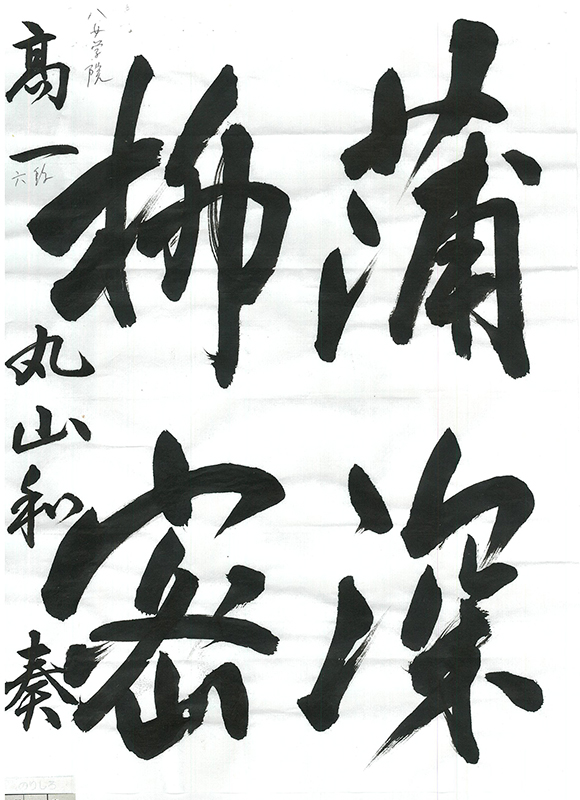 蒲深
柳密
高一 丸山和奏
八女学院
六段
のりしろ